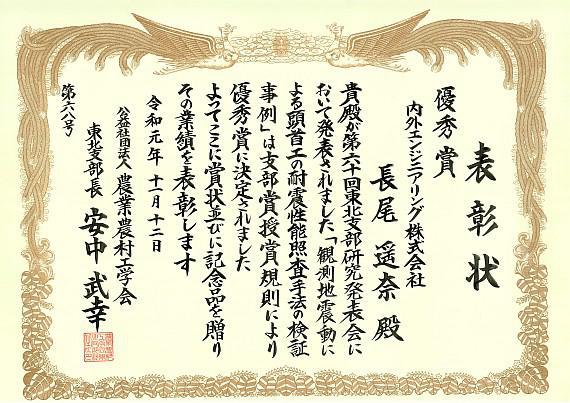 表彰状
優秀賞
内外エンジニアリング株式会社
長尾遥奈殿
貴殿が第六十回東北支部研究発表会に
おいて発表されました「観測地震動に
よる頭首工の耐震性能照査手法の検証
事例」は支部賞授賞規則により
優秀賞に決定されました
よってここに賞状並びに記念品を贈り
その業績を表彰します
令和元年十一月十二日
公益社団法人農業農村工学会
東北支部長安中武幸
第六八号